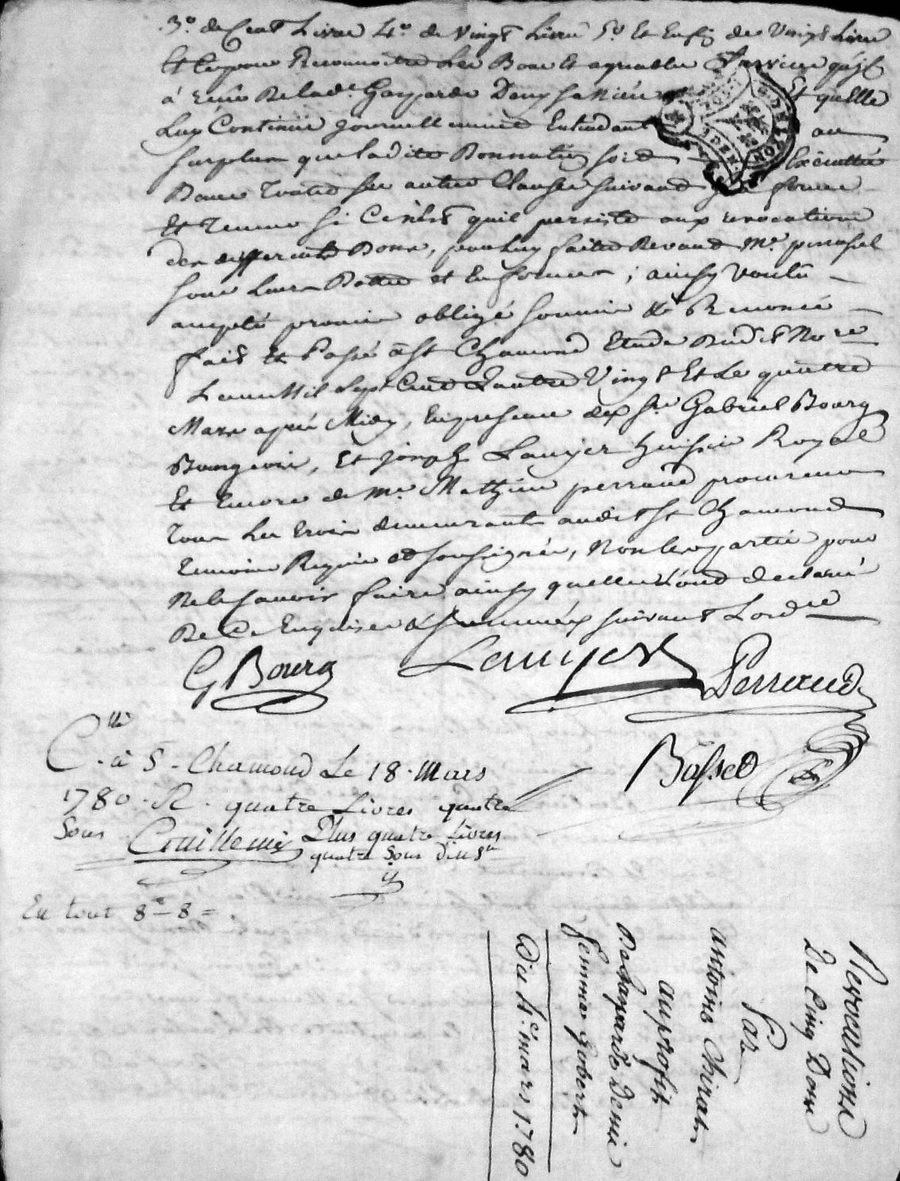 3º. de Cent Livre 4º. de vingt Livre 5º. et Enfin de Vingt Livre
Et ce pour Reconnoitre Les Bons et agreable Services quil
à Recu De lad.e Gasparde Deny sa Niéce Et qu'elle
Luy Continue Journellement Entendant au
surplus que ladite Donnation soit Exécutée
Dans toutes ses autres Clauses suivant forme
Et Teneur si Ce n'est qu'il persiste aux revocations
des differents Dons, par luy faits Devant Me.
sous Leurs Dattes et En forme ; ainsy voulu
accepté promis obligé soumis &c Renoncé
fait Et Passé à St Chamond Etude Dud.t Nore
Lan Mil Sept Cent Quatre Vingt Et Le quatre
Mars après Midy, En presence des Srs Gabriel Bourg
Bourgeois, Et Joseph Lauyer huissier Royal
Et Encore de Me. Mathieu perraud procureur
Tous Les trois demeurant audit St Chamond
Temoins Requis et soussignés, Non les parties pour
Ne le scavoir faire ainsy quelles L'ont declaré
De Ce Enquises & sommées suivant Lordre
G Bourg Lauyer Perraud
Basset
C.lle à S. Chamond Le 18. Mars
1780. R. quatre Livres quatre
Sous Plus quatre Livres
quatre Sous
En tout 8# - 8 =
Revocations
De Cinq Dons
Par
antoine Chirat
au profit
De Gasparde Denis
femme Gobert
Du 4e. mars 1780